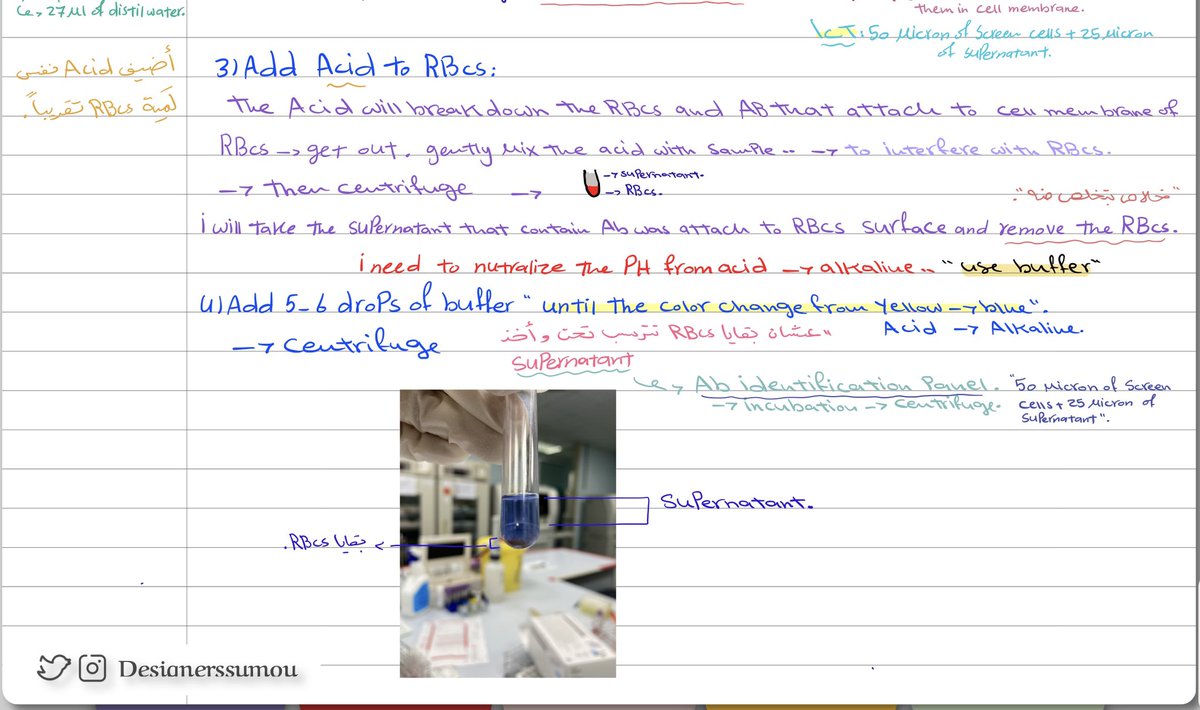 ↳ 27 Ml of distil water.
them in cell membrane.
ICT: 50 Micron of Screen cells + 25 Micron
of supernatant.
أضيف Acid نفس
كمية RBcs تقريباً.
3) Add Acid to RBcs:
The Acid will breakdown the RBcs and AB that attach to cell membrane of
RBcs → get out. gently Mix the acid with sample .. → to interfere with RBcs.
→ Then centrifuge →
→ supernatant.
→ RBc.
"خلاص بتخلص منه".
i will take the supernatant that contain Ab was attach to RBcs surface and remove the RBcs.
i need to nutralize the PH from acid → alkaline.. "use buffer"
4) Add 5-6 drops of buffer "until the color change from Yellow → blue".
Acid → Alkaline.
→ Centrifuge
"عشان بقايا RBcs تترسب تحت وأخذ
supernatant
↳ Ab identification Panel. "50 Micron of Screen
cells + 25 Micron of
supernatant".
→ incubation → centrifuge.
Supernatant.
بقايا RBcs.
Desianerssumou